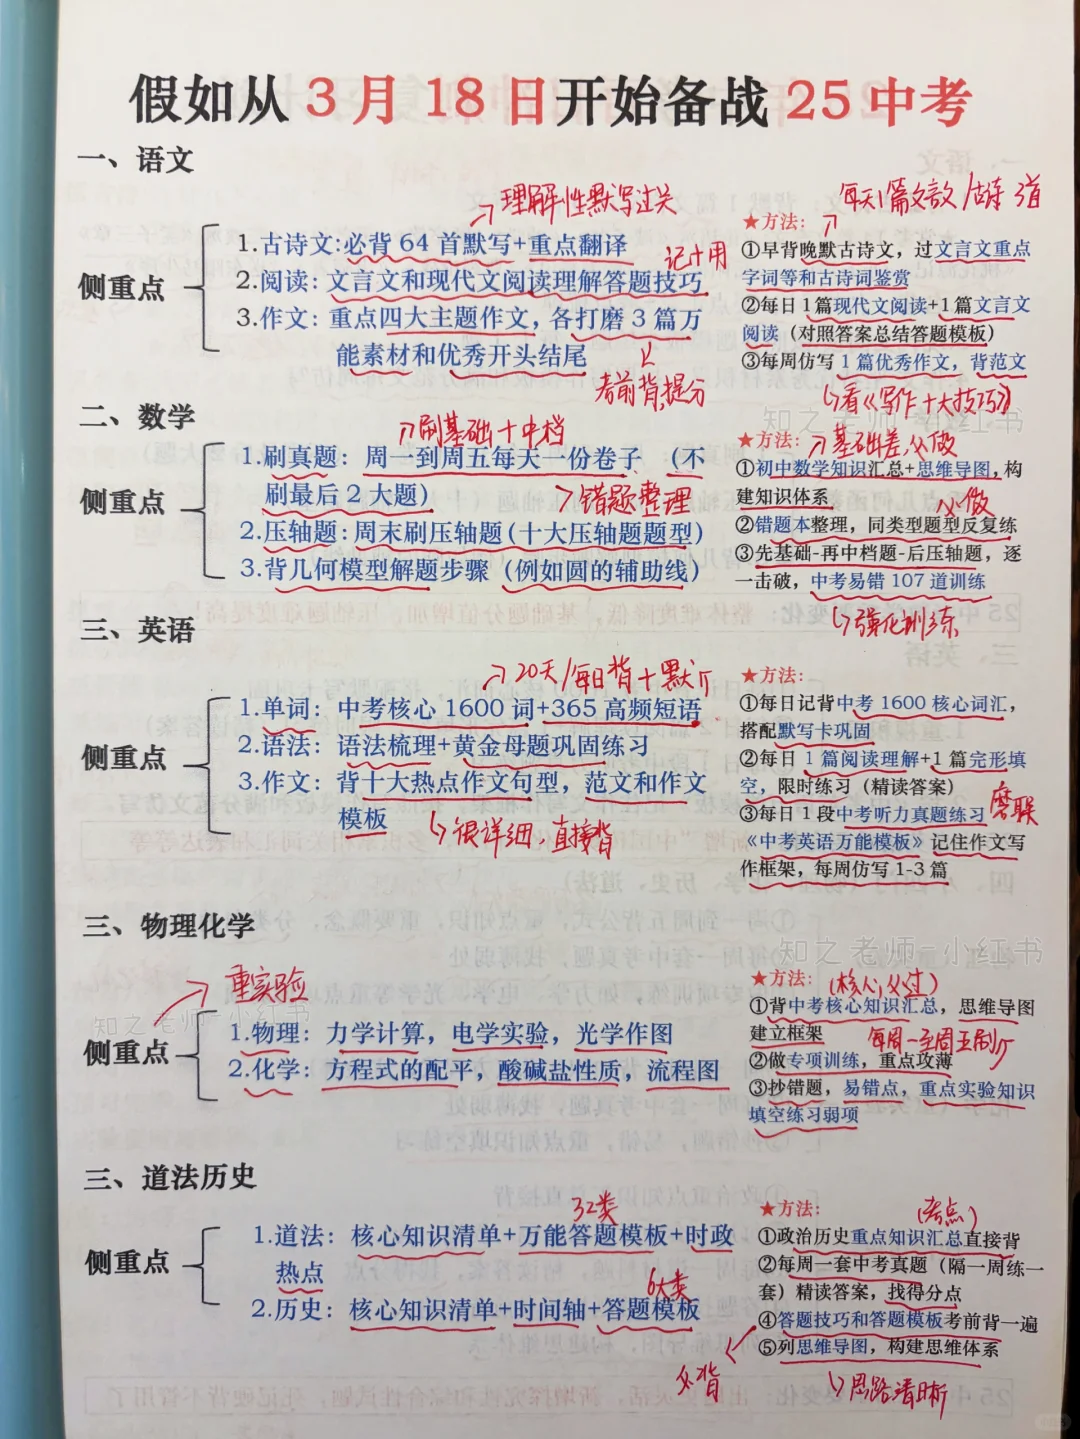 假如从3月18日开始备战25中考
一、语文
理解性默写过关
侧重点
1.古诗文:必背64首默写+重点翻译
记计用
2.阅读：文言文和现代文阅读理解答题技巧
3.作文：重点四大主题作文，各打磨3篇万
能素材和优秀开头结尾
考前背,提分
每天1篇文言文/古诗3道
★方法：
①早背晚默古诗文，过文言文重点
字词等和古诗词鉴赏
②每日1篇现代文阅读+1篇文言文
阅读（对照答案总结答题模板）
③每周仿写1篇优秀作文，背范文
看《写作十大技巧》
知之老师-小红书
二、数学
刷基础+中档
侧重点
1.刷真题：周一到周五每天一份卷子（不
刷最后2大题）
错题整理
2.压轴题:周末刷压轴题(十大压轴题题型)
3.背几何模型解题步骤（例如圆的辅助线）
★方法：
基础差,必做
①初中数学知识汇总+思维导图，构
建知识体系
必做
②错题本整理，同类型题型反复练
③先基础-再中档题-后压轴题，逐
一击破，中考易错107道训练
强化训练
三、英语
20天/每日背+默
侧重点
1.单词：中考核心1600词+365高频短语
2.语法：语法梳理+黄金母题巩固练习
3.作文：背十大热点作文句型，范文和作文
模板
很详细,直接背
★方法：
①每日记背中考1600核心词汇，
搭配默写卡巩固
②每日1篇阅读理解+1篇完形填
空，限时练习（精读答案）
磨耳朵
③每日1段中考听力真题练习
《中考英语万能模板》记住作文写
作框架，每周仿写1-3篇
三、物理化学
重实验
知之老师-小红书
侧重点
1.物理：力学计算，电学实验，光学作图
2.化学：方程式的配平，酸碱盐性质，流程图
知之老师-小红书
★方法：
(核心,必过)
①背中考核心知识汇总，思维导图
建立框架
每周一至周五刷
②做专项训练，重点攻薄
③抄错题，易错点，重点实验知识
填空练习弱项
三、道法历史
32类
侧重点
1.道法：核心知识清单+万能答题模板+时政
热点
6大类
2.历史：核心知识清单+时间轴+答题模板
★方法：
(考点)
①政治历史重点知识汇总直接背
②每周一套中考真题（隔一周练一
套）精读答案，找得分点
④答题技巧和答题模板考前背一遍
⑤列思维导图，构建思维体系
必背
思路清晰